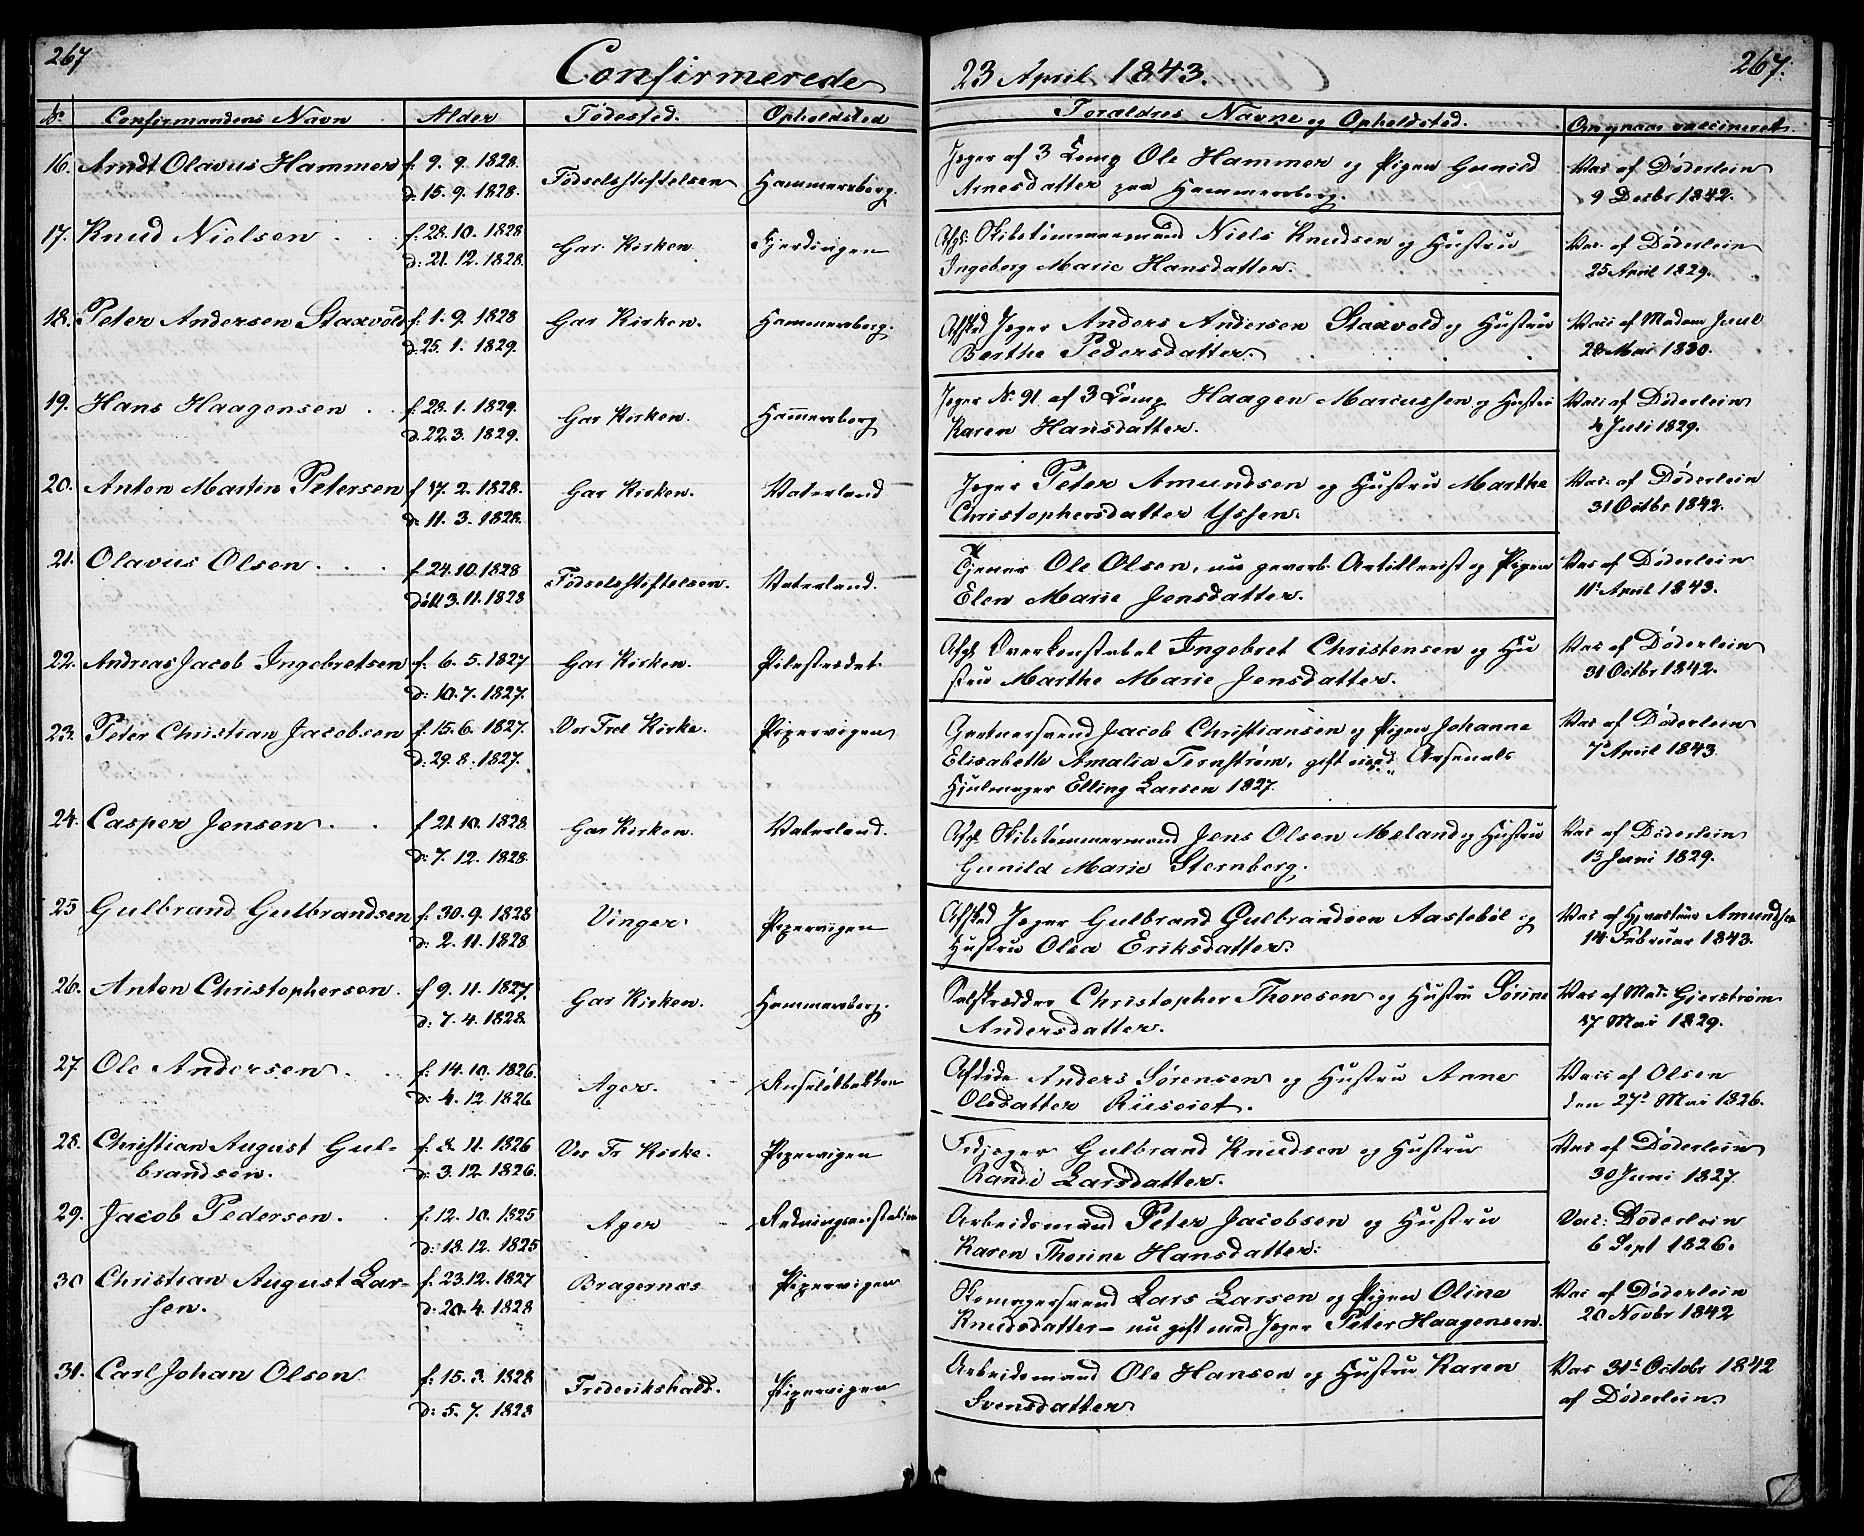 267
Confirmerede
23 April 1843.
267.
No
Confirmandens Navn
Alder
Fødested.
Opholdsted
Foræildres Navne og Opholdsted.
Om og naar vaccineret.
16. Arndt Olavus Hammer f. 9. 9. 1828. Fødselsstiftelsen Hammersberg. Jeger af 3 Comp Ole Hammer og Pigen Gunild Vac af Døderlein
d: 15. 9. 1828. Arnesdatter paa Hammersberg. 9 Decbr 1842.
17. Knud Nielsen f. 28. 10. 1828 Gar Kirken. Fjerdingen Afg: Skibstømmermand Niels Knudsen og Hustru Vac. af Døderlein
d: 21. 12. 1828. Ingeborg Marie Hansdatter. 25 April 1829.
18. Peter Andersen Staxvold f. 1. 9. 1828 Gar Kirken. Hammersberg. Afsked Jeger Anders Andersen Staxvold og Hustru Vacc af Madam Juul
d. 25. 1. 1829. Berthe Pedersdatter. 28 Mai 1830.
19. Hans Haagensen f. 23. 1. 1829. Gar Kirken. Ham̄ersberg Jeger No 91 af 3 Comp Haagen Marcussen og Hustru Vacc af Døderlein
d. 22. 3. 1829. Karen Hansdatter. 4 Juli 1829.
20. Anton Martin Petersen f 17. 2. 1828. Gar Kirken. Vaterland Jeger Peter Amundsen og Hustru Marthe Vac. af Døderlein
d: 11. 3. 1828. Christophersdatter Yssen. 31 Octbr 1842.
21. Olavus Olsen f. 24. 10. 1828 Fødselsstiftelsen. Vaterland. Tjener Ole Olsen, nu gevorb. Artillerist og Pigen Vac af Døderlein
Døbt 3. 11. 1828 Elen Marie Jensdatter. 11 April 1843.
22. Andreas Jacob Ingebretsen f. 6. 5. 1827 Gar Kirken. Pilestrædet. Afg. Overkonstabel Ingebret Christensen og Hu Vac af Døderlein
d: 10. 7. 1827. stru Marthe Marie Jensdatter. 31 Octbr 1842.
23. Peter Christian Jacobsen f. 15. 6. 1827. Vor Frel Kirke. Pipervigen Gartnersvend Jacob Christiansen og Pigen Johanne Vac af Døderlein
d: 29. 8. 1827. Elisabeth Amalia Ternstrøm, gift med Arsenals 7de April 1843
Hjulmager Elling Larsen 1827.
24. Casper Jensen f 21. 10. 1828. Gar Kirken. Vaterland. Afg. Skibstømmermand Jens Olsen Meland og Hustru Vac af Døderlein
d: 7. 12. 1828. Gunild Marie Sternberg. 13 Juni 1829.
25 Gulbrand Gulbrandsen f. 30. 9. 1828 Vinger Pipervigen Afsked Jeger Gulbrand Gulbrandsen Aastebøl og Vac af Amundsen
d: 2. 11. 1828 Hustru Olea Eriksdatter. 14 Februar 1843.
26. Anton Christophersen. f 9. 11. 1827. Gar Kirken. Hammersberg. Christopher Thoresen og Hustru Sørine Vac af Mad: Gjerstrøm
d: 7. 4. 1828. Andersdatter. 17 Mai 1829.
27. Ole Andersen. f. 14. 10. 1826. Ager. Ruseløkbakken Afdøde Anders Sørensen og Hustru Anne Vacc af Olsen
d: 4. 12. 1826 Olsdatter Rüseiet. den 27de Mai 1826.
28. Christian August Gul- f. 8. 11. 1826 Vor Fr Kirke. Pipervigen Gulbrand Knudsen og Hustru Vac af Døderlein
brandsen. d: 3. 12. 1826. Randi Larsdatter. 30 Juni 1827.
29. Jacob Pedersen. f. 12. 10. 1825 Ager Redningsanstalten Arbeidsmand Peter Jacobsen og Hustru Vac: Døderlein
d: 18. 12. 1825 Karen Thorine Hansdatter. 6 Sept 1826.
30 Christian August Lar- f. 23. 12. 1827 Bragernæs Pipervigen Skomagersvend Lars Larsen og Pigen Oline Vac af Døderlein
sen. d: 20. 4. 1828 Knudsdatter – nu gift med Jeger Peter Haagensen. 20 Novbr 1842
31. Carl Johan Olsen f. 15. 3. 1828 Frederikshald. Pipervigen Arbeidsmand Ole Hansen og Hustru Karen Vac 31te Octobr 1842
d: 5. 7. 1828 Svensdatter af Døderlein.